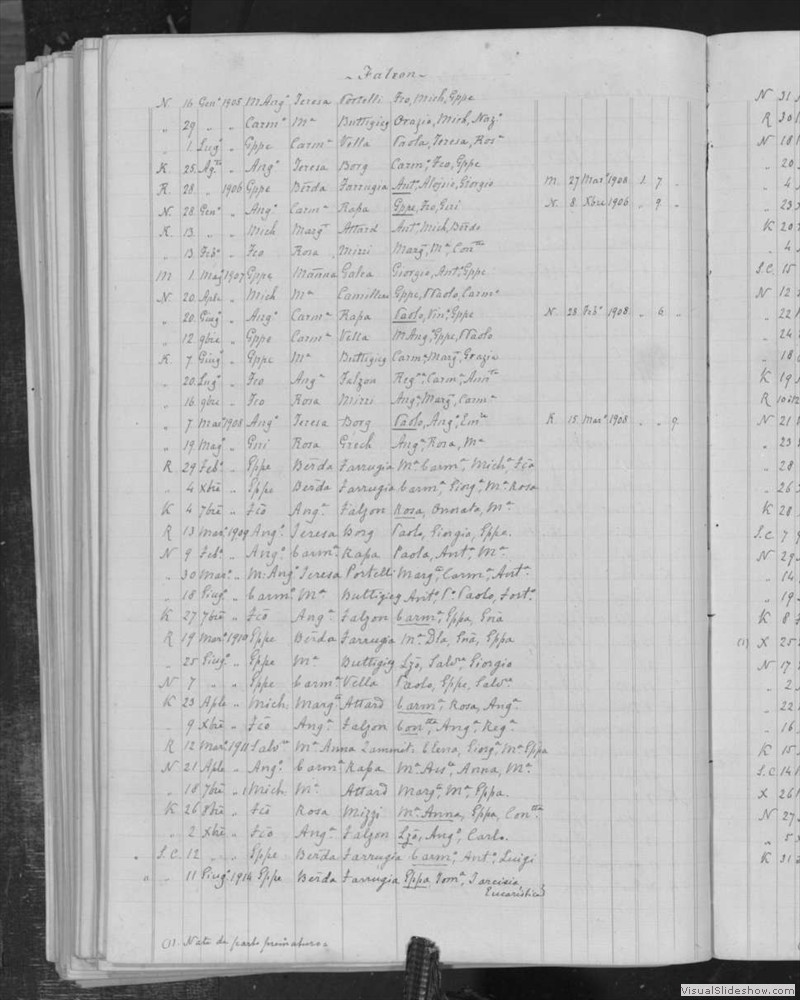 - Falzon -
N. 16 Genº 1905 M. Angº Teresa Portelli Fro, Mich, Gppe
„ 29 „ „ Carmº Mª Buttigieg Orazio, Mich, Nazº
„ 1 Lugº „ Gppe Carmª Vella Paola, Teresa, Rosª
K 25 Agto „ Angº Teresa Borg Carmº, Fro, Gppe
R. 28 „ 1906 Gppe Berda Farrugia Antº, Aloisio, Giorgio M. 27 Marº 1908 1. 7. „
N. 28 Genº „ Angº Carmª Rapa Gppe, Fro, Giri N. 8 Xbre 1906 „ 9. „
K. 13 „ „ Mich Margª Attard Antº, Mich, Berdo
„ 13 Febº „ Fco Rosa Mizzi Margª, Mª, Contta
M 1 Magº 1907 Gppe Marina Galea Giorgio, Antº, Gppe
N. 20 Aple „ Mich Mª Camilleri Gppe, Paolo, Carmº
„ 20 Giugº „ Angº Carmª Rapa Paolo, Vinº, Gppe N. 28 Febº 1908 „ 6 „
„ 12 9bre „ Gppe Carmª Vella M Ang, Gppe, Paolo
K. 7 Giugº „ Gppe Mª Buttigieg Carmª, Margª, Grazia
„ 20 Lugº „ Fco Angª Falzon Regª, Carmª,
„ 16 9bre „ Fco Rosa Mizzi Angª, Margª, Carmª
„ 7 Marº 1908 Angº Teresa Borg Paolo, Angº, Emª K 15 Marº 1908 „ „ 9.
„ 19 Magº „ Giri Rosa Grech Angª, Rosa, Mª
R 29 Febº „ Gppe Berda Farrugia Mª Carmª, Michª, Fca
„ 4 Xbre „ Gppe Berda Farrugia Carmª, Giorgª, Mª Rosa
K 4 7bre „ Fco Angª Falzon Rosa, Onorata, Mª
R 13 Marº 1909 Angº Teresa Borg Paolo, Giorgio, Gppe.
N 9 Febº „ Angº Carmª Rapa Paola, Antª, Mª
„ 30 Marº „ M. Angº Teresa Portelli Margª, Carmª, Antª
„ 18 Giugº „ Carmº Mª Buttigieg Antº, Pº Paolo, Fortº
K 27 7bre „ Fco Angª Falzon Carmª, Gppa, Gna
R 19 Marº 1910 Gppe Berda Farrugia Mª Dla, Gna, Gppa
„ 25 Giugº „ Gppe Mª Buttigieg Lzo, Salvre, Giorgio
N 7 „ „ Gppe Carmª Vella Paolo, Gppe, Salvre
K 23 Aple „ Mich. Margª Attard Carmª, Rosa, Angª
„ 9 Xbre „ Fco Angª Falzon Contta, Angª, Regª
R 12 Marº 1911 Salvre Mª Anna Zammit Elena, Giorgª, Mª Gppa
N 21 Aple „ Angº Carmª Rapa Mª Assª, Anna, Mª
„ 18 7bre „ Mich. Mª Attard Margª, Mª, Gppa.
K 26 8bre „ Fco Rosa Mizzi Mª Anna, Gppa, Contta
„ 2 Xbre „ Fco Angª Falzon Lzo, Angº, Carlo.
S.C. 12 „ „ Gppe Berda Farrugia Carmº, Antº, Luigi
„ 11 Giugº 1914 Gppe Berda Farrugia Gppa Domª, Tarcisia
Eucaristica
(1). Nata di parto prematuro.
N 31
R 30
N 18
„ 20
„ 4
„ 23
K 20
„ 4
S.C. 15
N 12
„ 22
„ 24
„ 18
K 19
R
N 21
„ 23
„ 28
„ 26
K 28
S.C. 7
N 29
„ 14
„ 19
K 8
(1) X 25
N 17
„ 2
„ 22
„ 16
K 15
S.C. 14
X 26
N 27
„ 5
K 31
VisualSlideshow.com